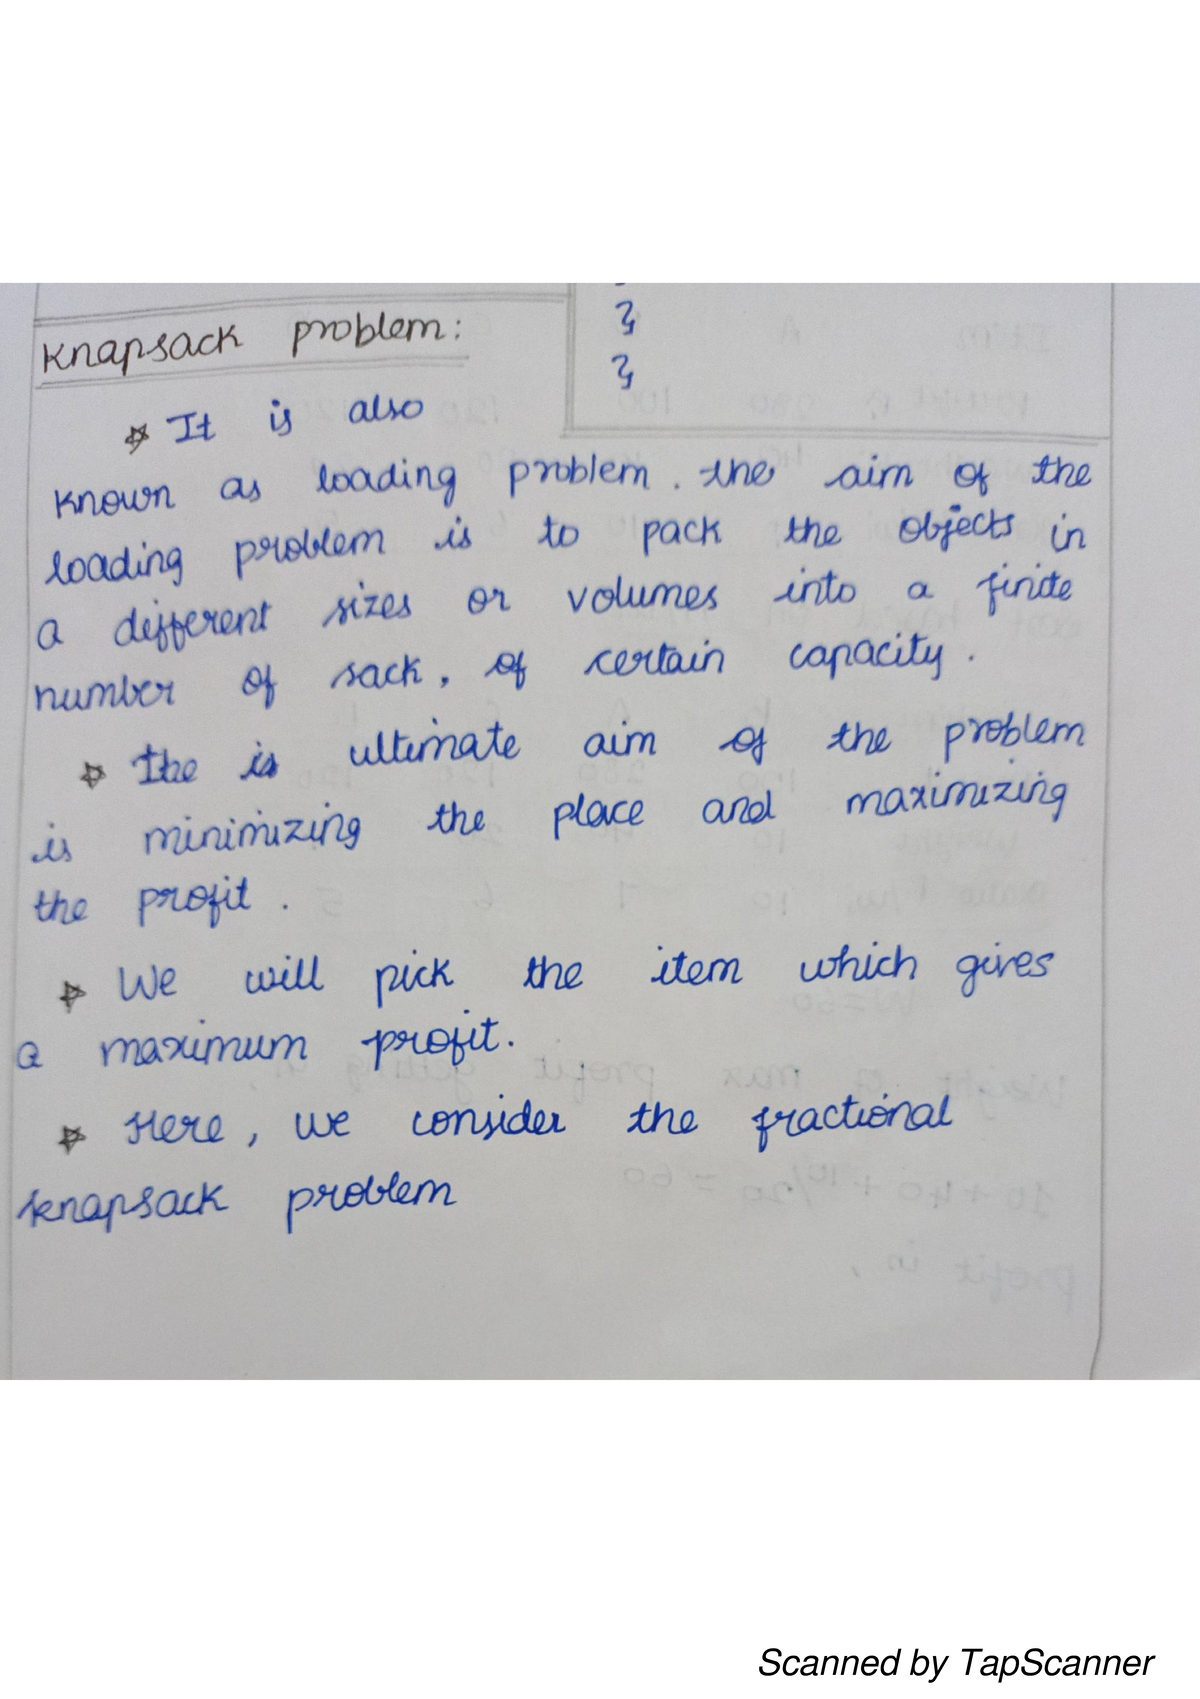 }
}
Knapsack problem:
☆ It is also
known as loading problem. the aim of the
loading problem is to pack the objects in
a different sizes or volumes into a finite
number of sack, of certain capacity.
☆ The is ultimate aim of the problem
is minimizing the place and maximizing
the profit.
☆ We will pick the item which gives
a maximum profit.
☆ Here, we consider the fractional
knapsack problem
Scanned by TapScanner